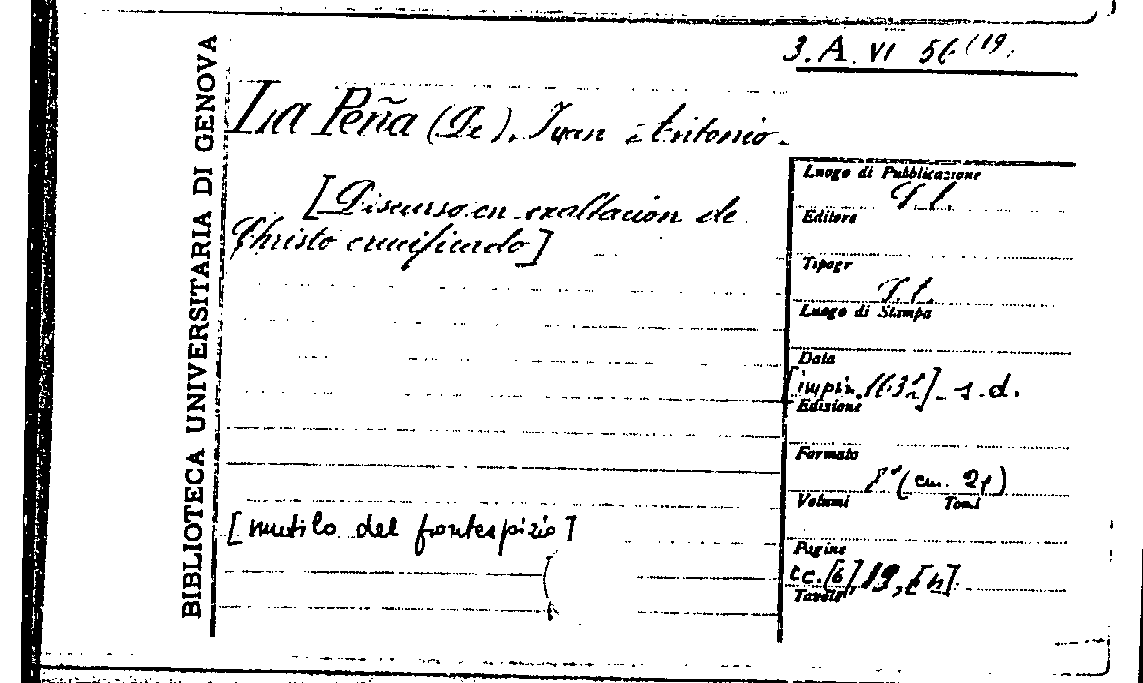 BIBLIOTECA UNIVERSITARIA DI GENOVA
3. A. VI 56 (19.
La Peña (De), Iuan Antonio.
[Discurso en exaltacion de
Christo crucificado]
[mutilo del frontespizio]
Luogo di Pubblicazione
S. l.
Editore
Tipogr
S. t.
Luogo di Stampa
Data
s. d.
Edizione
Formato
8° (cm.
Volumi Tomi
Pagine
cc. [6], 19,
Tavole